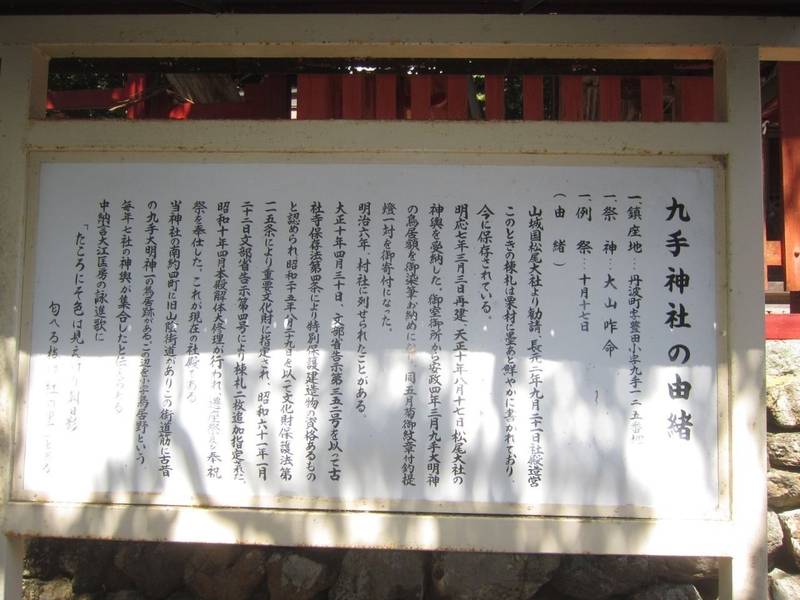 九手神社の由緒
一、鎮座地…丹波町字豊田小字九手一二五番地
一、祭神…大山咋命
一、例祭…十月十七日
(由緒)
山城国松尾大社より勧請、長元二年九月二十一日社殿造営
このときの棟札は栗材に墨あと鮮やかに書かれており、
今に保存されている。
明応七年三月三日再建、天正十年八月十七日松尾大社の
神輿を受納した。御室御所から安政四年三月九手大明神
の鳥居額を御染筆お納めに 同五月菊御紋章付釣提
燈一対を御寄付になった。
明治六年、村社に列せられたことがある。
大正十年四月三十日、文部省告示第三五二号を以って古
社寺保存法第四条により特別保護建造物の資格あるもの
と認められ昭和二十五年八月二十九日を以って文化財保護法第
一一五条により重要文化財に指定され、昭和六十一年一月
二十二日文部省告示第四号により棟札二枚追加指定された。
昭和十年四月本殿解体大修理が行われ、遷座祭を奉祝
祭を奉仕した、これが現在の社殿である
当神社の南約四町に旧山陰街道がありこの街道筋に古昔
の九手大明神一の鳥居跡がある、この辺を小字鳥居野という
毎年七社の神輿が集合したと伝えられる
中納言大江匡房の詠進歌に
「たころにそ色は見え 朝日影
匂へる